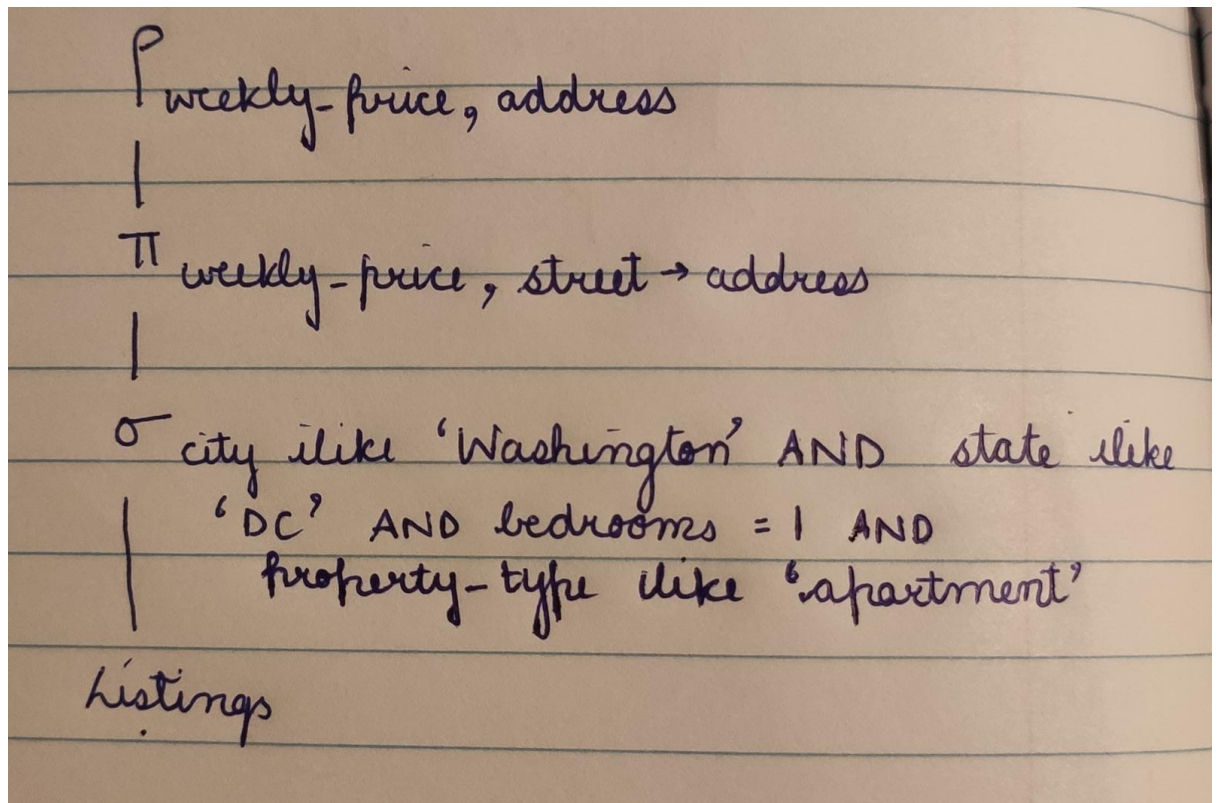 ρ weekly_price, address
π weekly_price, street → address
σ city ilike 'Washington' AND state ilike
'DC' AND bedrooms = 1 AND
property_type ilike 'apartment'
Listings